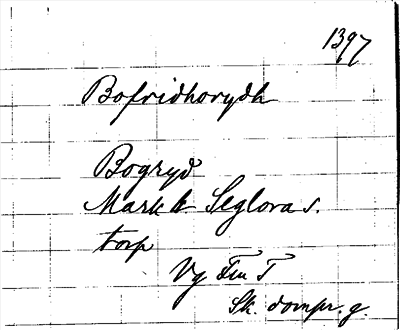 1397
Bofridhorydh
Bogryd
Mark k Seglora s.
torp
Vg Fru T
Sk. dompr. g.